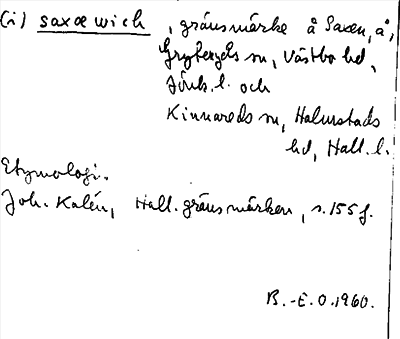 (i) saxæ wich, gränsmärke å Saxen, å,
Gryteryds sn, Västbo hd,
Jönk. l. och
Kinnareds sn, Halmstads
hd, Hall. l.
Etymologi.
Joh. Kalén, Hall. gränsmärken, s. 155 f.
B.-E. O. 1960.